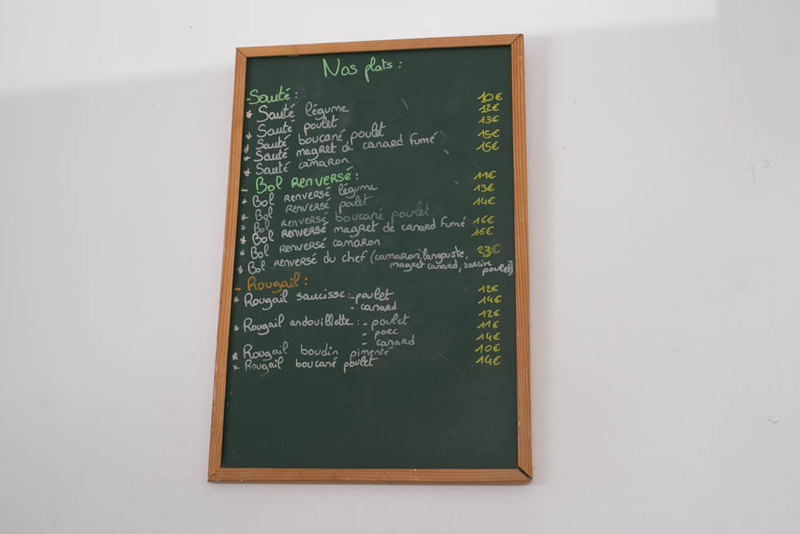 Nos plats :
- Sauté :
* Sauté légume 10€
* Sauté poulet 12€
* Sauté boucané poulet 13€
* Sauté magret de canard fumé 15€
* Sauté camaron 15€
- Bol RENVERSÉ :
* Bol RENVERSÉ légume 11€
* Bol RENVERSÉ poulet 13€
* Bol RENVERSÉ boucané poulet 14€
* Bol RENVERSÉ magret de canard fumé 16€
* Bol RENVERSÉ camaron 16€
* Bol RENVERSÉ du chef (camaron, langouste, 23€
magret canard, sarcive poulet)
- Rougail :
* Rougail saucisse : - poulet 12€
- canard 14€
* Rougail andouillette : - poulet 12€
- porc 11€
- canard 14€
* Rougail boudin pimenté 10€
* Rougail boucané poulet 14€